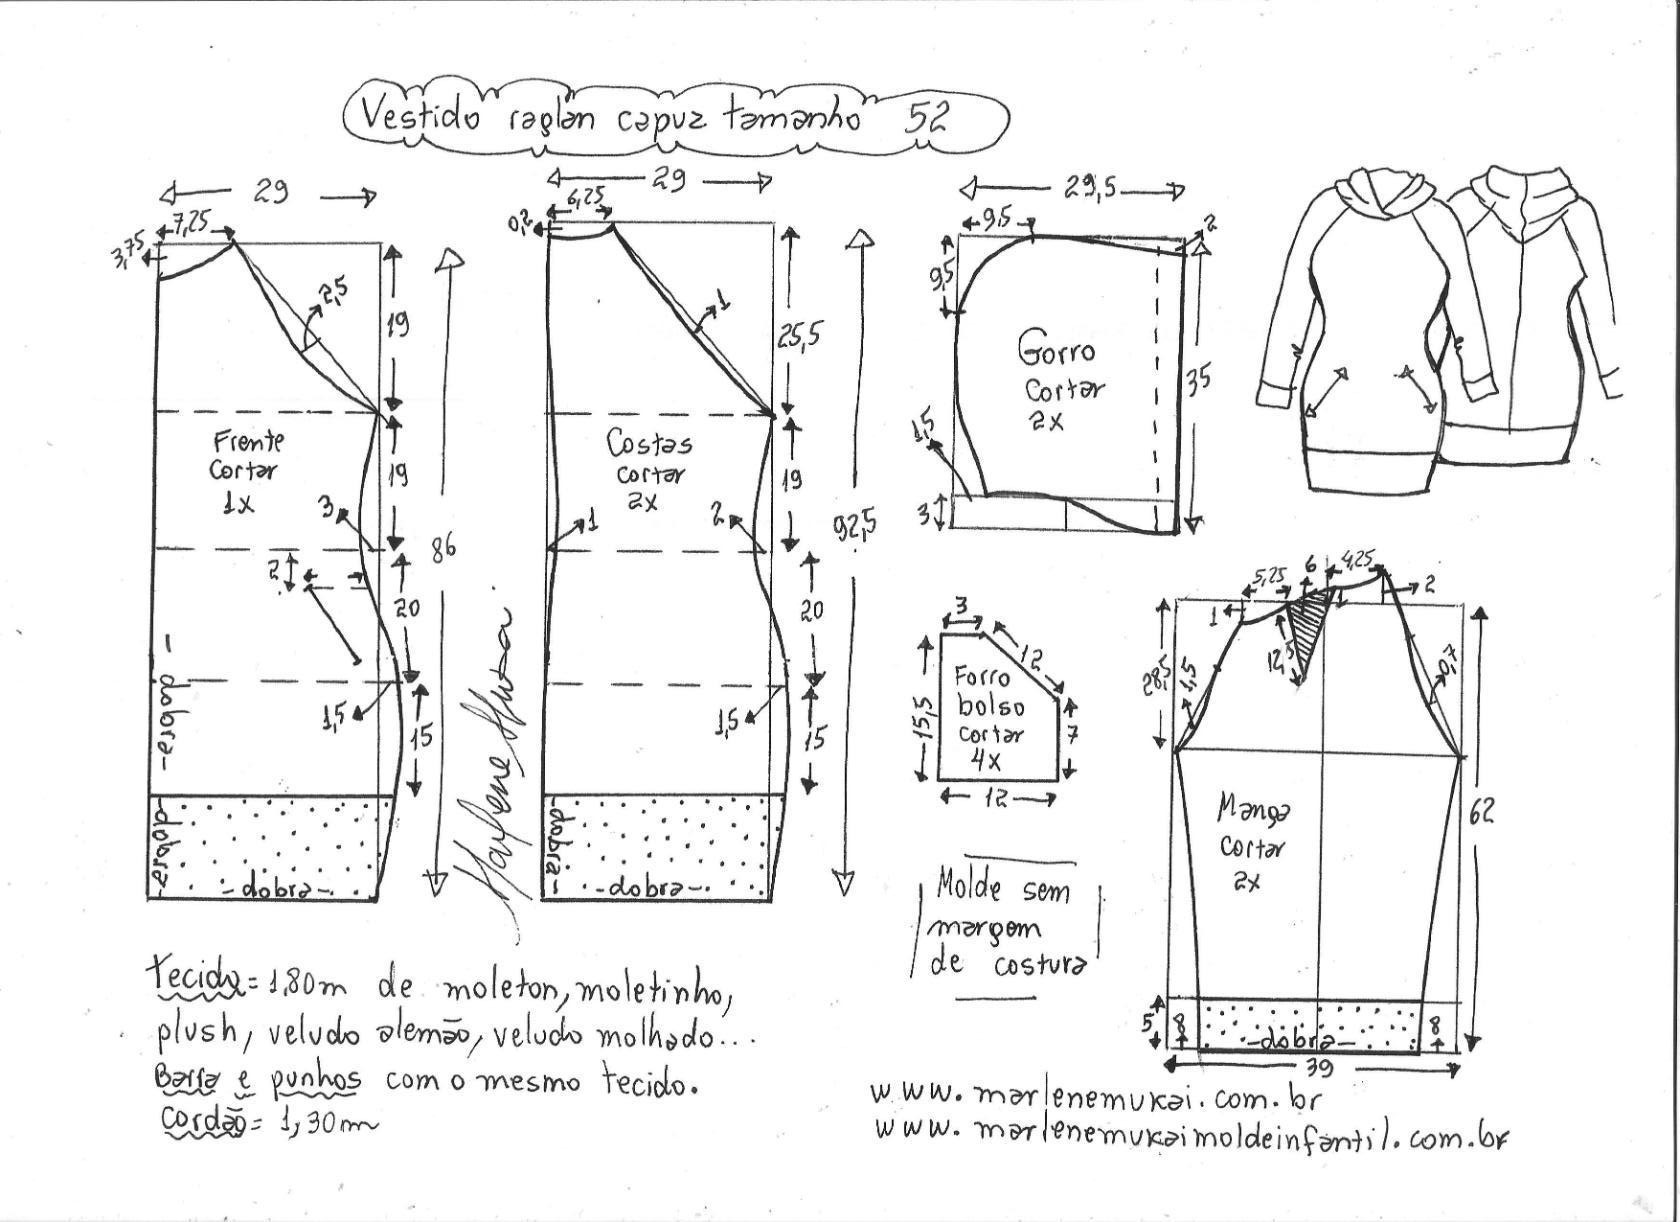 Vestido raglan capuz tamanho 52
29
7,25
3,75
2,5
19
Frente
cortar
1x
19
3
86
2
20
1,5
15
- dobra -
dobra-
-dobra-
29
6,25
0,2
1
25,5
Costas
cortar
2x
19
1
2
92,5
20
1,5
15
-dobra-
-dobra-
Marlene Mukai
29,5
9,5
2
9,5
Gorro
cortar
2x
35
1,5
3
3
12
Forro
bolso
cortar
4x
15,5
7
12
5,25
6
4,25
1
1
2
12,5
28,5
1,5
0,7
Manga
cortar
2x
62
5
8
-dobra-
8
39
Molde sem
margem
de costura
Tecido= 1,80m de moleton, moletinho,
plush, veludo alemão, veludo molhado...
Barra e punhos com o mesmo tecido.
cordão= 1,30m
www.marlenemukai.com.br
www.marlenemukaimoldeinfantil.com.br